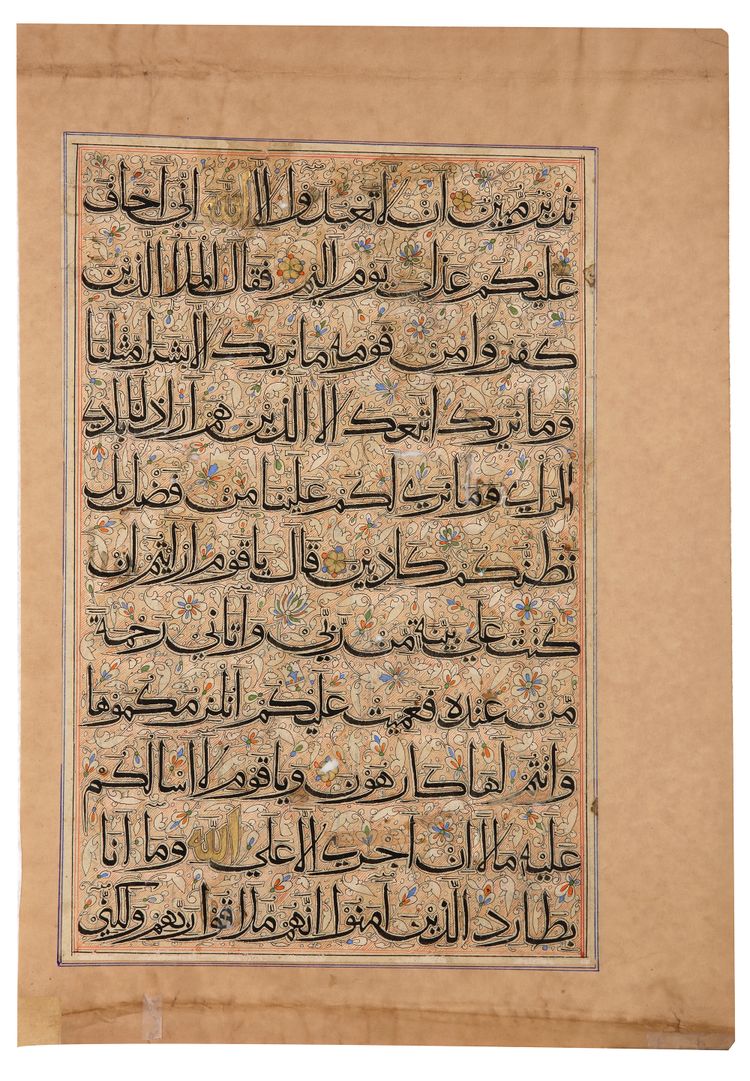 نذير مبين ان لا تعبدوا الا الله اني اخاف
عليكم عذاب يوم اليم فقال الملا الذين
كفروا من قومه ما نريك الا بشرا مثلنا
وما نريك اتبعك الا الذين هم اراذلنا بادي
الراي وما نري لكم علينا من فضل بل
نظنكم كاذبين قال يا قوم ارايتم ان
كنت علي بينة من ربي واتاني رحمة
من عنده فعميت عليكم انلزمكموها
وانتم لها كارهون ويا قوم لا اسالكم
عليه مالا ان اجري الا علي الله وما انا
بطارد الذين امنوا انهم ملاقوا ربهم ولكني